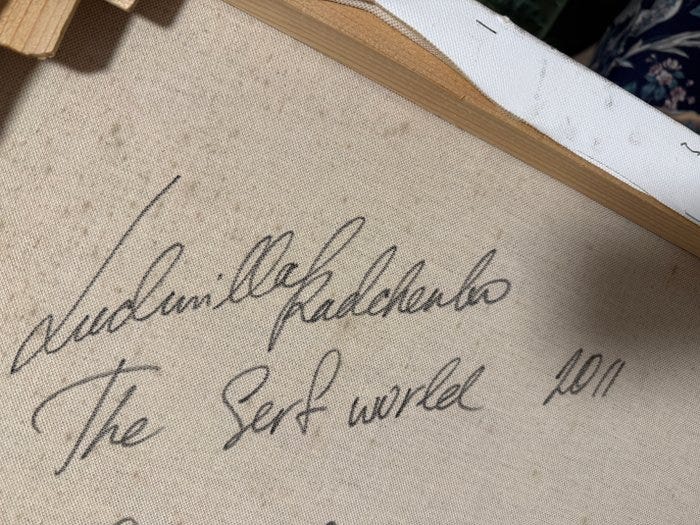 Ludmilla Radchenko
The Serf world 2011